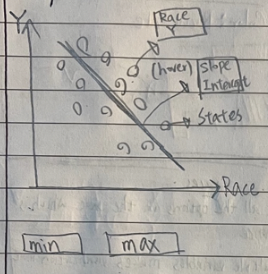 Y
Race
Y
(hover)
Slope
Intercept
States
Race
min
max